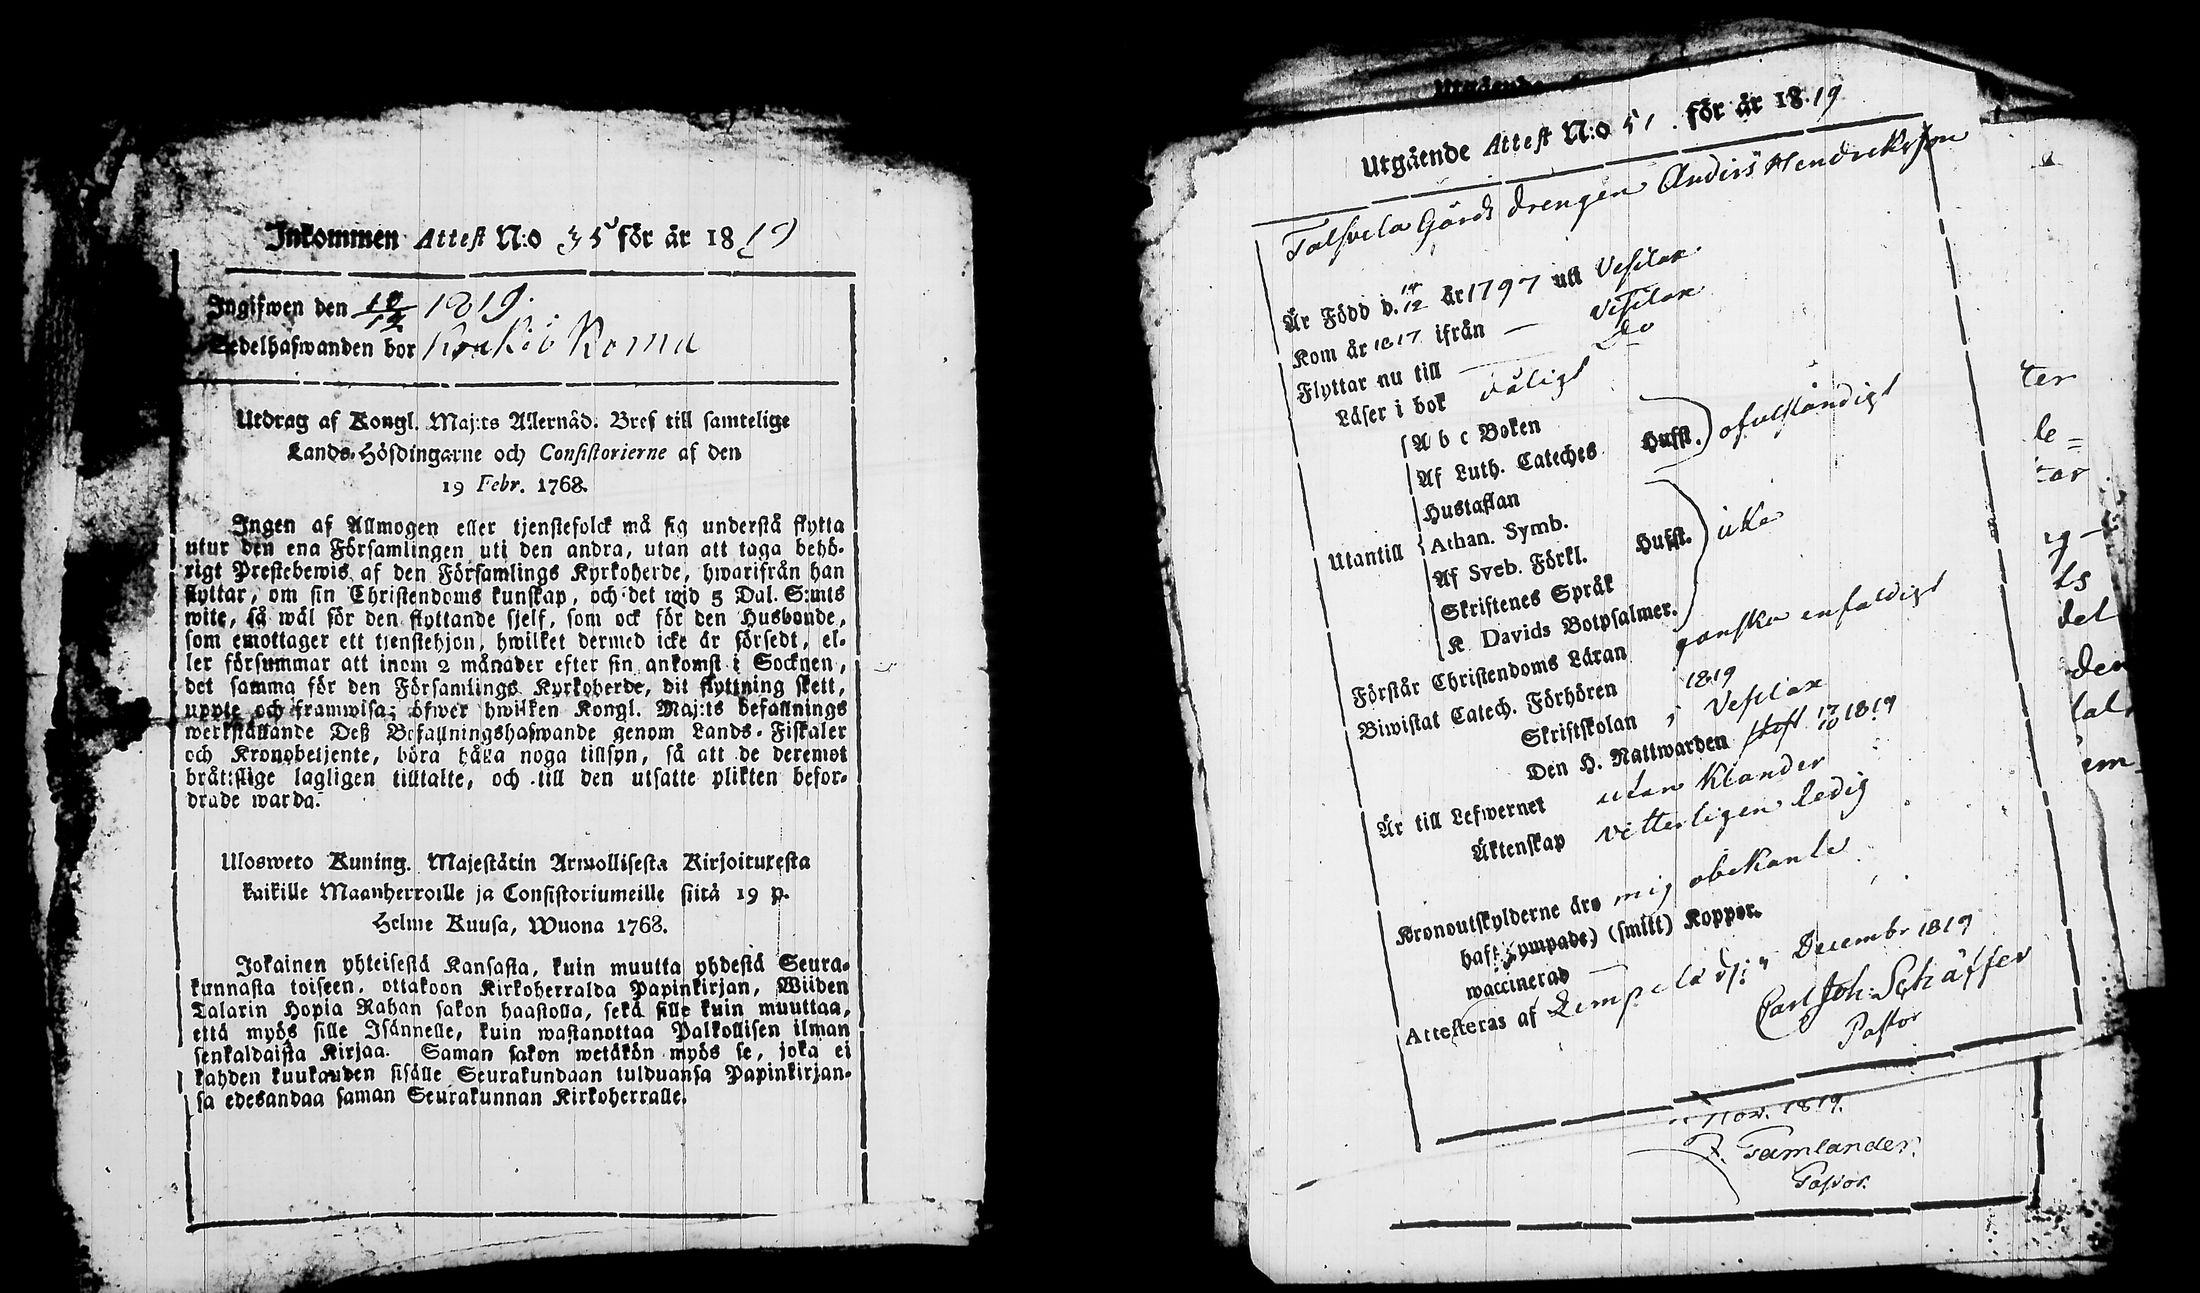 Inkommen Attest N:o 35 för år 1819
Ingifwen den 18/12 1819.
Sedelhafwanden bor
Utdrag af Kongl. Maj:ts Allernåd. Bref till samtelige
Lands-Höfdingarne och Consistorierne af den
19 Febr. 1768.
Ingen af Allmogen eller tjenstefolck må sig understå flytta
utur den ena Församlingen uti den andra, utan att taga behö-
rigt Prestebewis af den Församlings Kyrkoherde, hwarifrån han
flyttar, om sin Christendoms kunskap, och det wid 5 Dal. S:mts
wite, så wäl för den flyttande sjelf, som ock för den Husbonde,
som emottager ett tjenstehjon, hwilket dermed icke är försedt, el-
ler försummar att inom 2 månader efter sin ankomst i Socknen,
det samma för den Församlings Kyrkoherde, dit flyttning skett,
uppte och framwisa; öfwer hwilken Kongl. Maj:ts befallnings
werkställande Deß Befallningshafwande genom Lands-Fiskaler
och Kronobetjente, böra hålla noga tillsyn, så att de deremot
bråttslige lagligen tilltalte, och till den utsatte plikten befor-
drade warda.
Ulosweto Kuning. Majestätin Armollisesta Kirjoituxesta
kaikille Maanherroille ja Consistoriumeille siitä 19 p.
Helme Kuusa, Wuona 1768.
Jokainen yhteisestä Kansasta, kuin muutta yhdestä Seura-
kunnasta toiseen, ottakoon Kirkoherralda Papinkirjan, Wiiden
Talarin Hopia Rahan sakon haastolla, sekä sille kuin muuttaa,
että myös sille Isännelle, kuin wastanottaa Palkollisen ilman
senkaldaista Kirjaa. Saman sakon wetäkön myös se, joka ei
kahden kuukauden sisälle Seurakundaan tulduansa Papinkirjan-
sa edesandaa saman Seurakunnan Kirkoherralle.
Utgående Attest N:o 51. för år 1819
Talsvela Gårds drengen Anders Hendricksson
Är Född d. 14/12 år 1797 uti Vesilax
Kom år 1817 ifrån — Vesilax
Flyttar nu till — Do
Läser i bok dåligt
A b c Boken
Af Luth. Cateches Hufst. ofulständigt
Hustaflan
Athan. Symb.
Utantill Af Sveb. Förkl. Hufst. icke
Skriftenes Språk
K. Davids Botpsalmer.
Förstår Christendoms Läran ganska enfaldigt
Biwistat Catech. Förhören 1819
Skriftskolan i Vesilax
Den H. Nattwarden 17/10 1819
Är till Lefwernet utan klander
Äktenskap vitterligen ledig
Kronoutskylderne äro mig obekante
haft (ympade) (smitt) Koppor.
waccinerad —
Attesteras af Lempela d. Decembr 1819
Carl Joh: Schäffer
Pastor
Nov. 1819.
Gamlander.
Pastor.
ter
le=
tar
ds
del
den
tal
em-